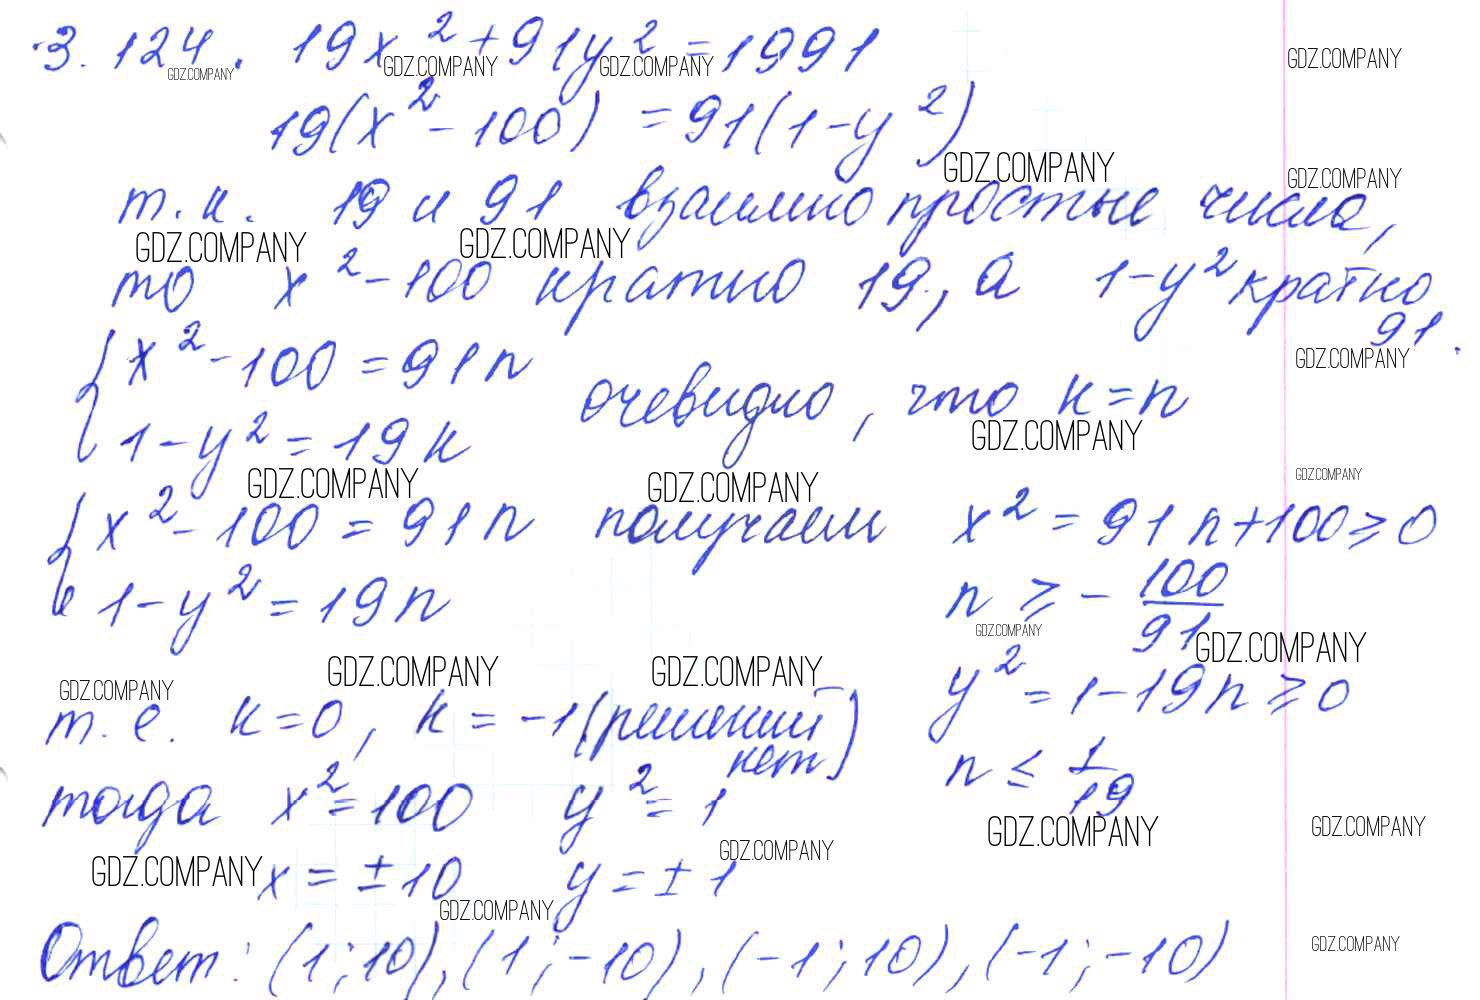 3.124. 19x² + 91y² = 1991
GDZ.COMPANY GDZ.COMPANY GDZ.COMPANY GDZ.COMPANY
19(x² - 100) = 91(1 - y²)
GDZ.COMPANY GDZ.COMPANY
т.к. 19 и 91 взаимно простые числа,
GDZ.COMPANY GDZ.COMPANY
то x² - 100 кратно 19, а 1 - y² кратно
91.
GDZ.COMPANY
{ x² - 100 = 91n
1 - y² = 19к
очевидно, что к = n
GDZ.COMPANY
GDZ.COMPANY GDZ.COMPANY GDZ.COMPANY
{ x² - 100 = 91n получаем x² = 91n + 100 ≥ 0
1 - y² = 19n
n ≥ - 100/91
GDZ.COMPANY GDZ.COMPANY
GDZ.COMPANY GDZ.COMPANY GDZ.COMPANY
y² = 1 - 19n ≥ 0
т.е. к = 0, к = -1 (решений
нет)
n ≤ 1/19
тогда x² = 100 y² = 1
GDZ.COMPANY GDZ.COMPANY
GDZ.COMPANY GDZ.COMPANY
x = ±10 y = ±1
GDZ.COMPANY
Ответ: (1; 10), (1; -10), (-1; 10), (-1; -10)
GDZ.COMPANY